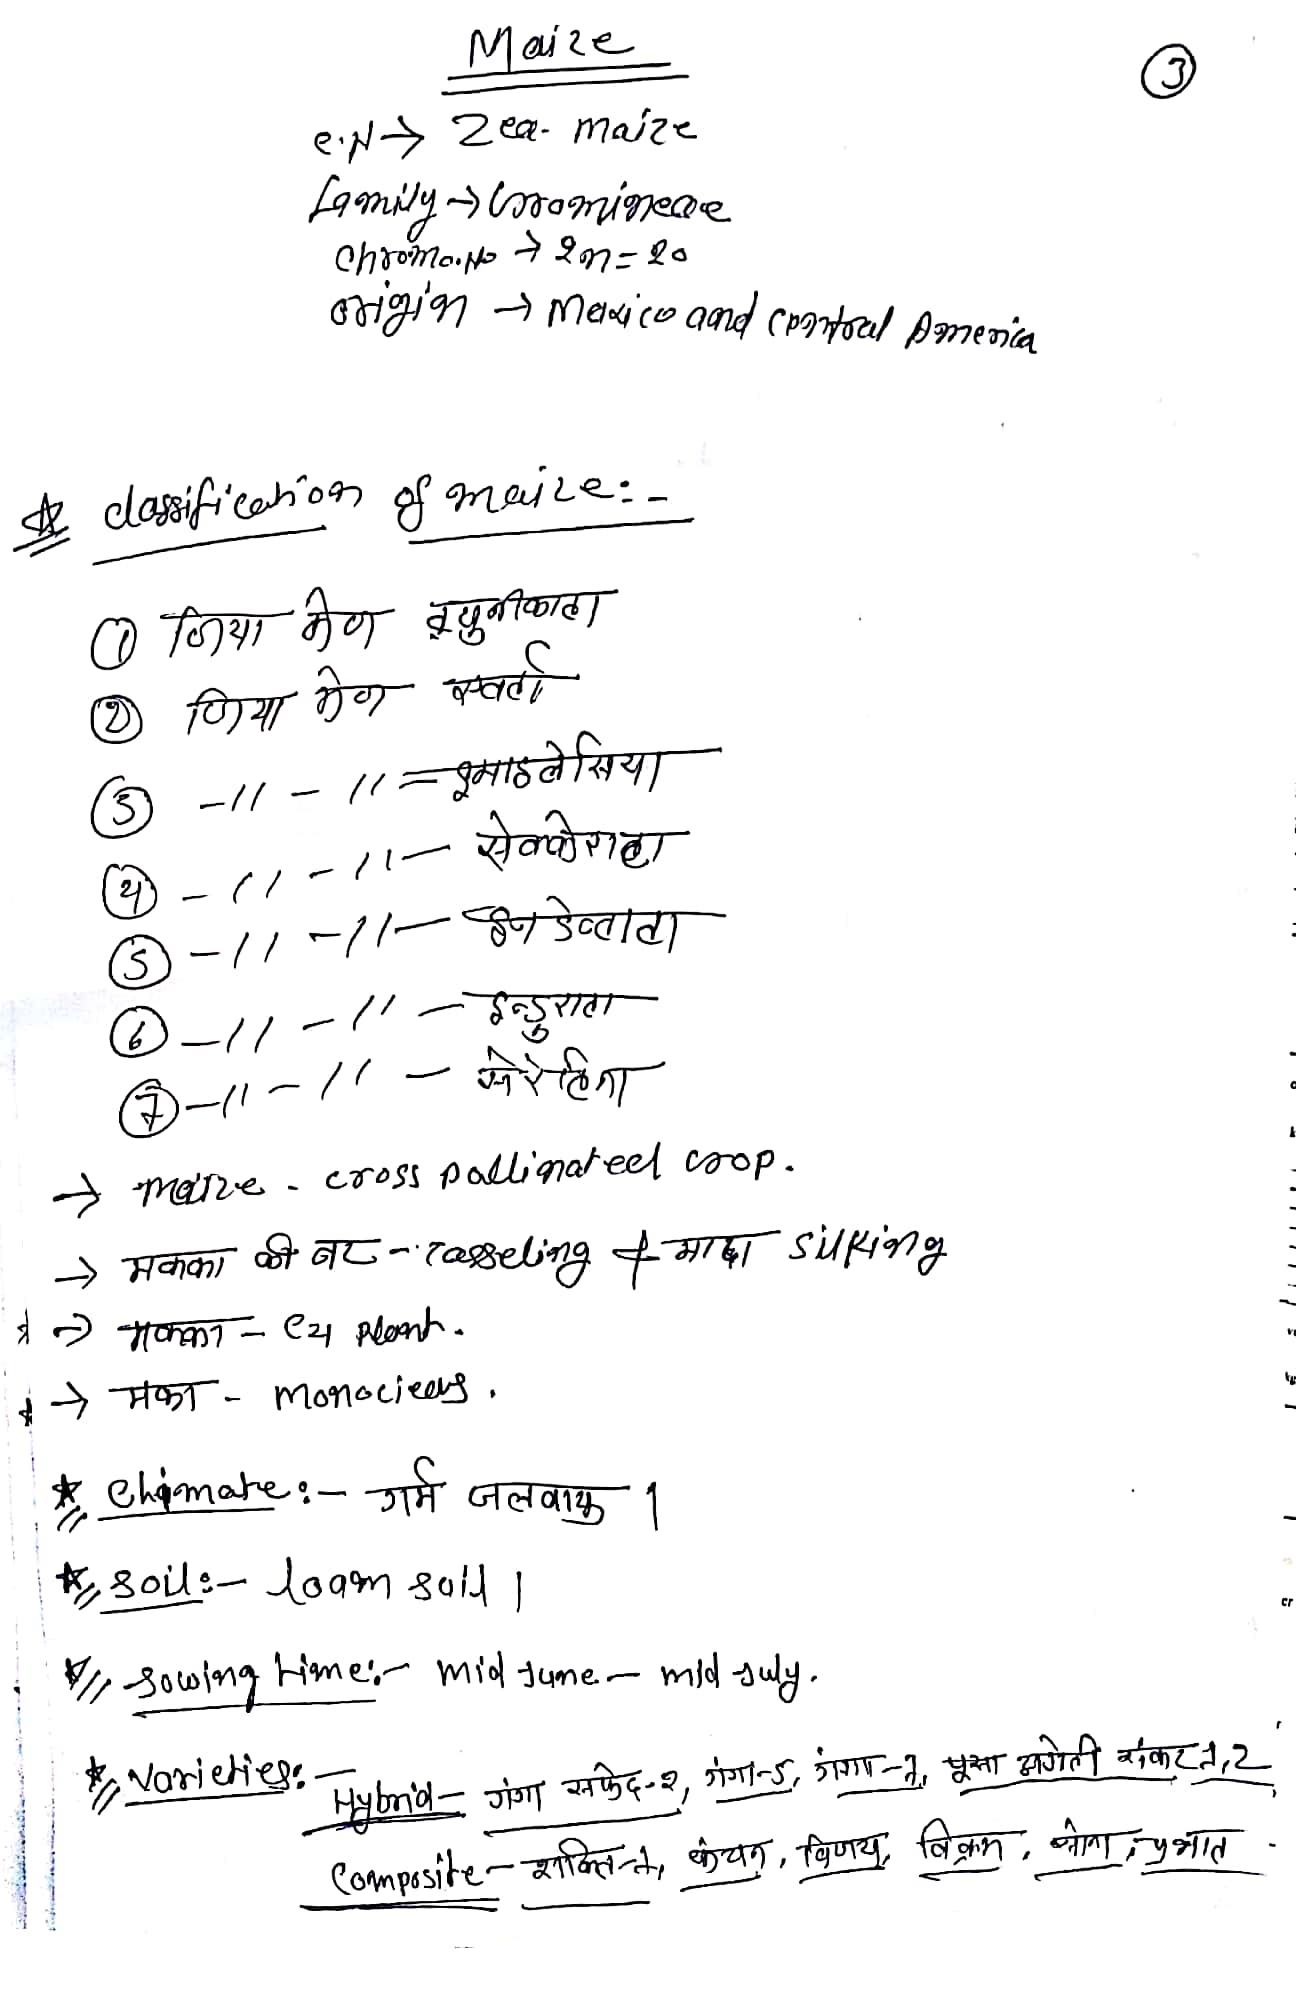 Maize
3
Zea- maize
Family → Gramineae
Chromo. No → 2n = 20
origin → Mexico and Central America
classification of maize:-
① जिया मेज ट्युनीकाटा
② जिया मेज स्वर्टा
③ -11 - 11 = इमाइलेसिया
④ - 11 - 11 - सेक्केराटा
⑤ - 11 - 11 - इनडेन्टाटा
⑥ - 11 - 11 - इन्डुराटा
⑦ - 11 - 11 - सेरेटिना
→ maize - cross pollinated crop.
→ मक्का की नर - Tasseling & मादा silking
→ मक्का - C4 plant.
→ मक्का -
* Climate:- गर्म जलवायु ।
* Soil:- loam soil |
Sowing time:- mid June - mid July.
* Varieties:- Hybrid - गंगा सफेद-2, गंगा-5, गंगा-7, पूसा अगेती संकर 1, 2
Composite - शक्ति-1, कंचन, विजय, विक्रम, सोना, प्रभात